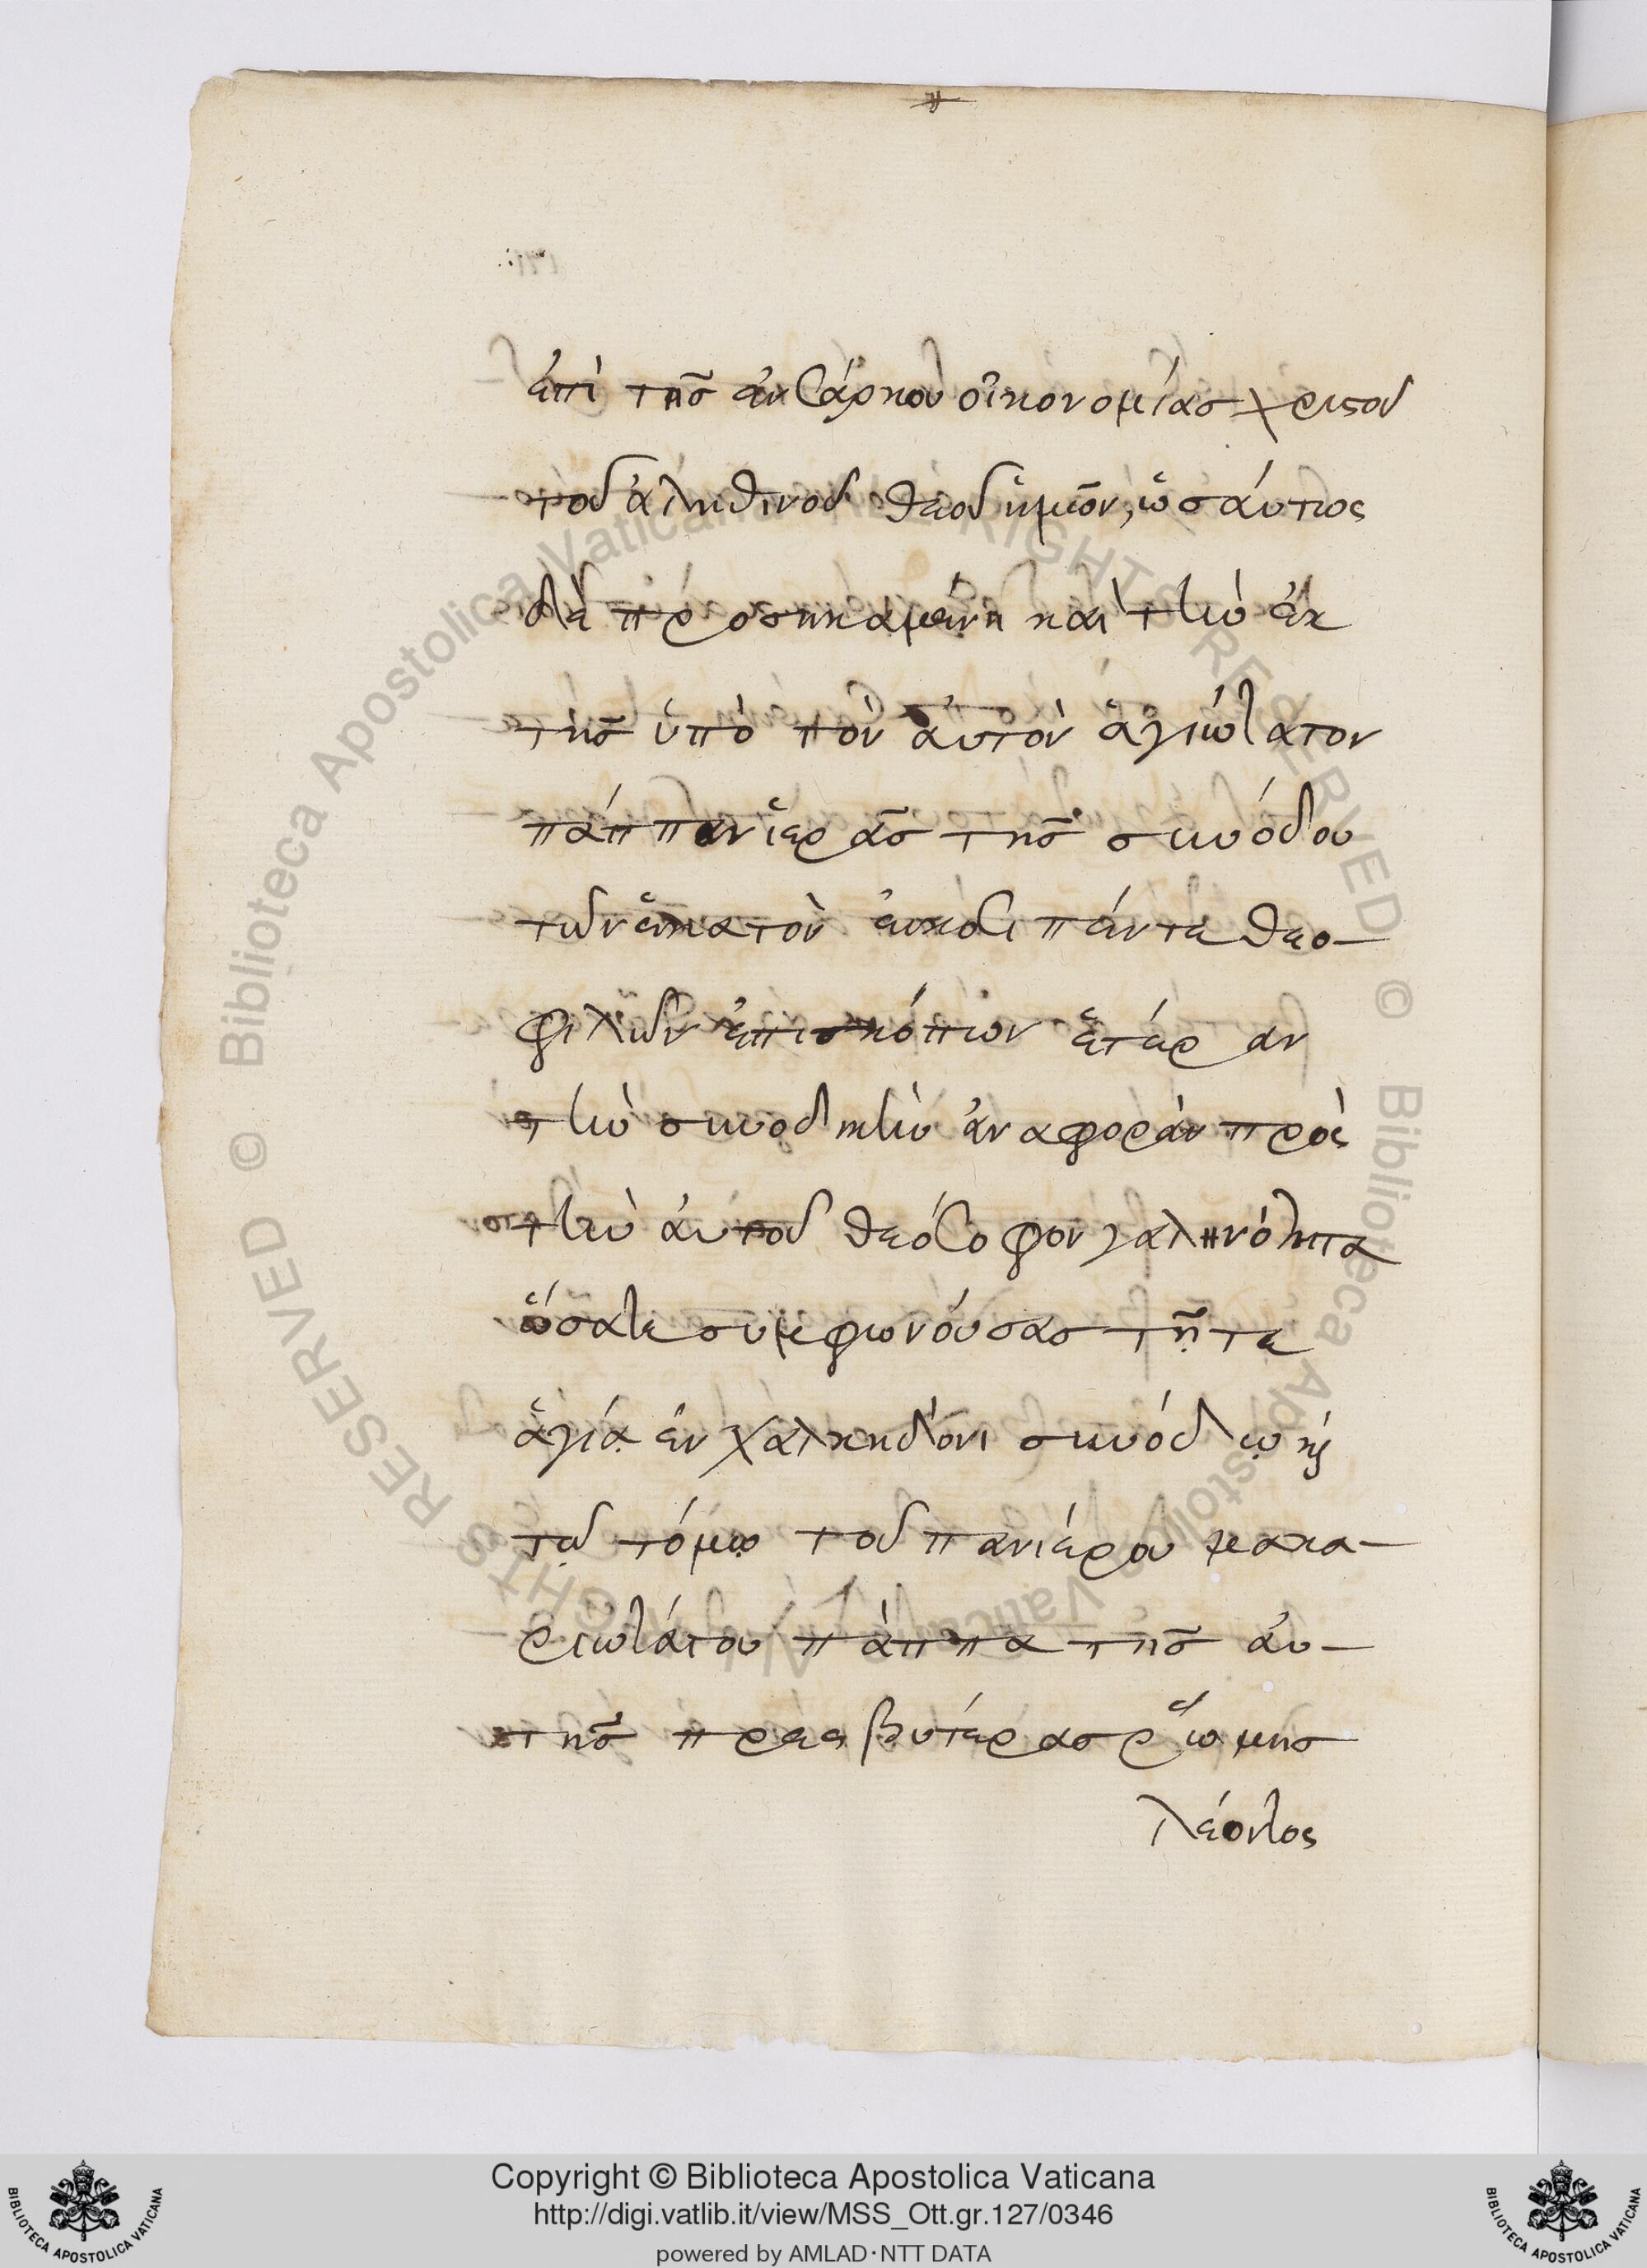 ἐπὶ τῆς ἐνσάρκου οἰκονομίας χριστοῦ
τοῦ ἀληθινοῦ θεοῦ ἡμῶν, ὡσάυτως
δὲ προσηκαμένη καὶ τὴν ἐκ
τῆς ὑπὸ τὸν ἀυτὸν ἁγιώτατον
πάππαν ἱερᾶς τῆς συνόδου
τῶν ἑκατὸν εικοσι πέντε θεο-
φιλῶν ἐπισκόπων ἑτέραν
τὴν συνοδικὴν ἀναφορὰν πρὸς
τὴν ἀυτοῦ θεόσοφον γαληνότητα
ὥσατε συμφωνόυσας τῆ τε
ἁγίᾳ ἐν χαλκηδόνι συνόδῳ κϳ
τῷ τόμῳ τοῦ πανιέρου μακα-
ριωτάτου πάππα τῆς ἀυ-
τῆς πρεσβυτέρας ῥώμης
λέοντος
Copyright © Biblioteca Apostolica Vaticana
http://digi.vatlib.it/view/MSS_Ott.gr.127/0346
powered by AMLAD·NTT DATA
BIBLIOTECA APOSTOLICA VATICANA
BIBLIOTECA APOSTOLICA VATICANA
© Biblioteca Apostolica Vaticana ALL RIGHTS RESERVED
© Biblioteca Apostolica Vaticana ALL RIGHTS RESERVED